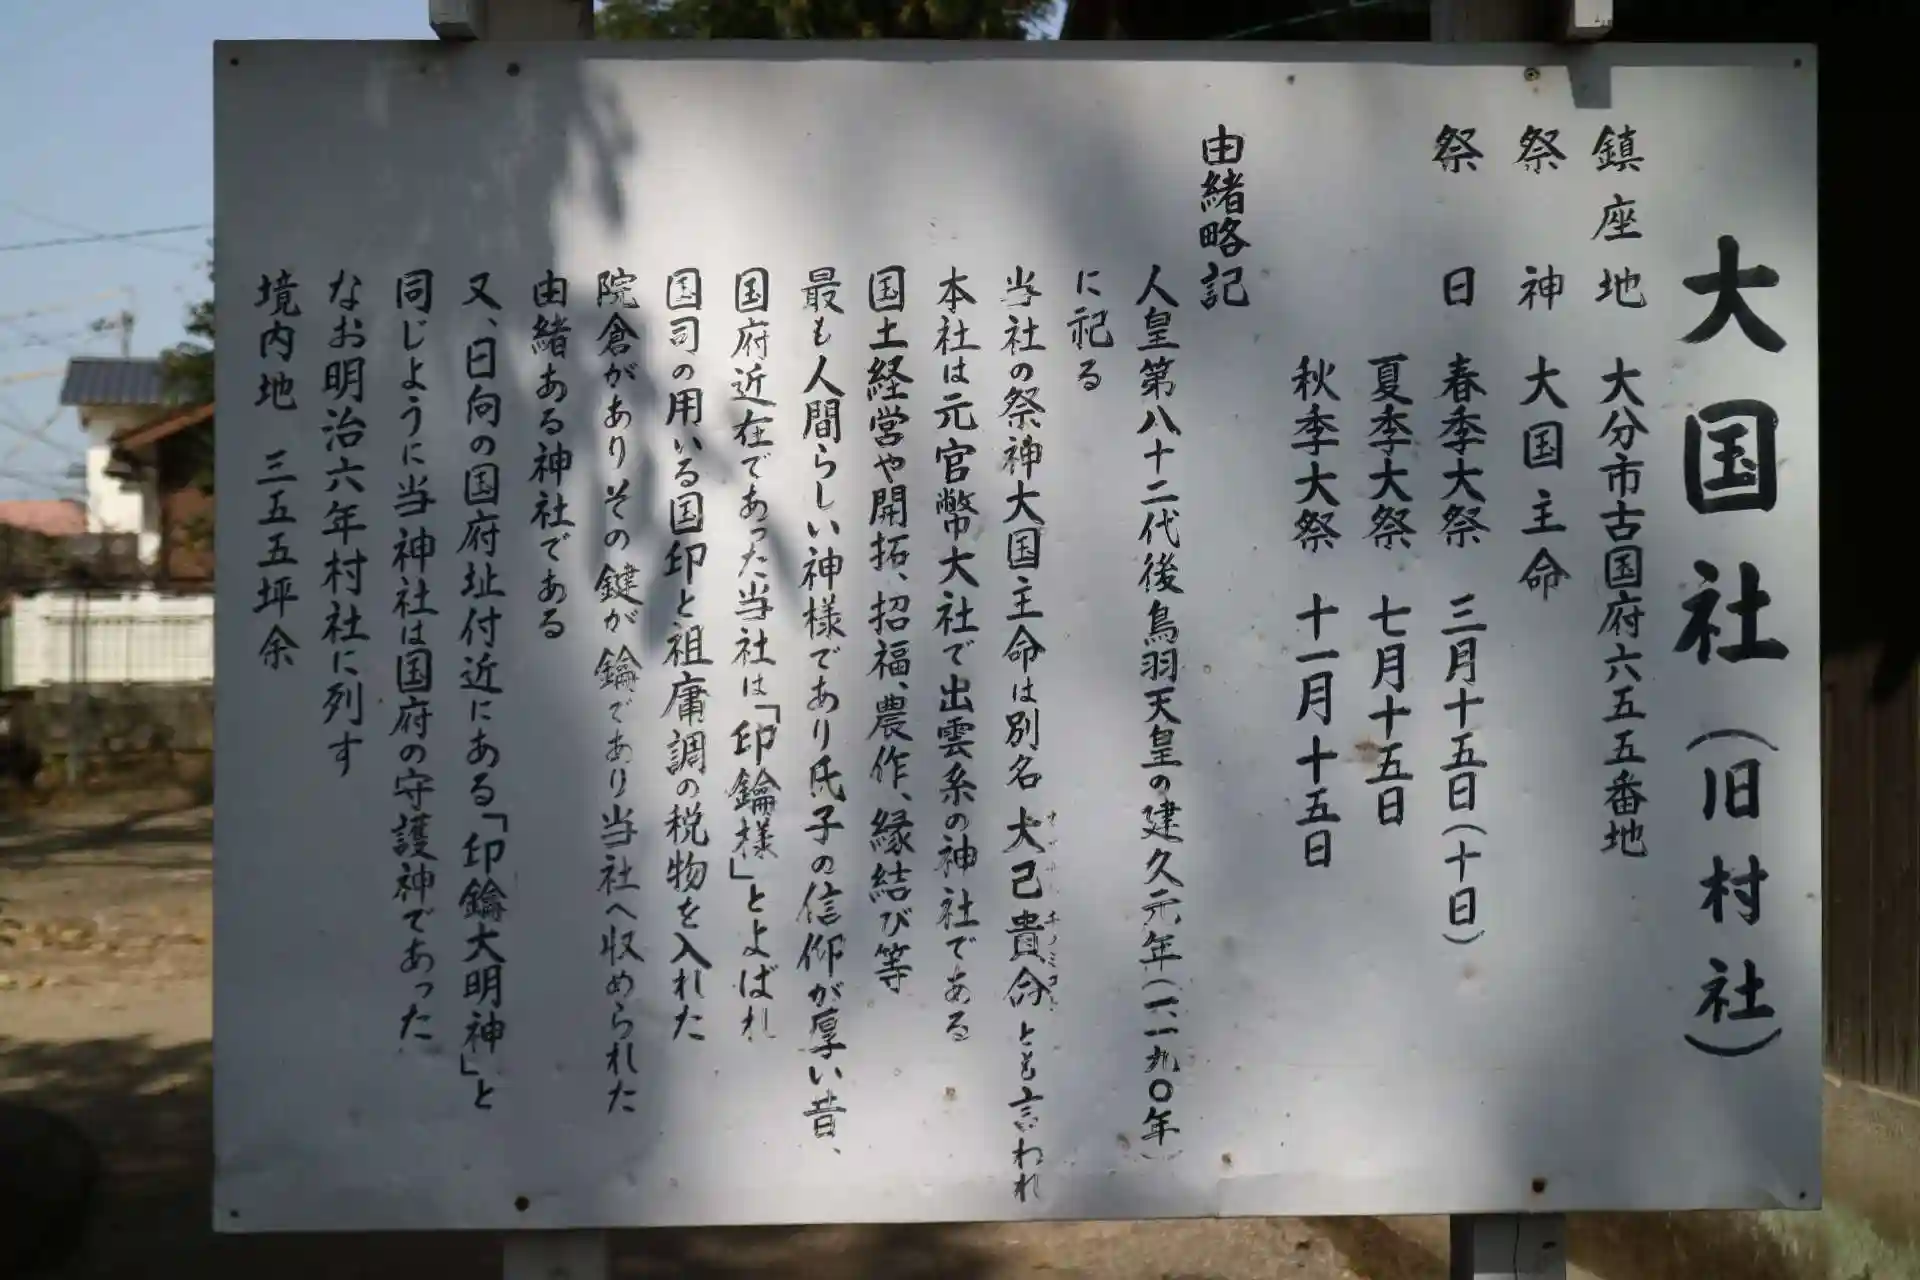 大国社（旧村社）
鎮座地　大分市古国府六五五番地
祭神　大国主命
祭日　春季大祭　三月十五日（十日）
夏季大祭　七月十五日
秋季大祭　十一月十五日
由緒略記
人皇第八十二代後鳥羽天皇の建久元年（一一九〇年）
に祀る
当社の祭神大国主命は別名大己貴命とも言われ
本社は元官幣大社で出雲系の神社である
国土経営や開拓、招福、農作、縁結び等
最も人間らしい神様であり氏子の信仰が厚い昔、
国府近在であった当社は「印鑰様」とよばれ
国司の用いる国印と祖庸調の税物を入れた
院倉がありその鍵が鑰であり当社へ収められた
由緒ある神社である
又、日向の国府址付近にある「印鑰大明神」と
同じように当神社は国府の守護神であった
なお明治六年村社に列す
境内地　三五五坪余